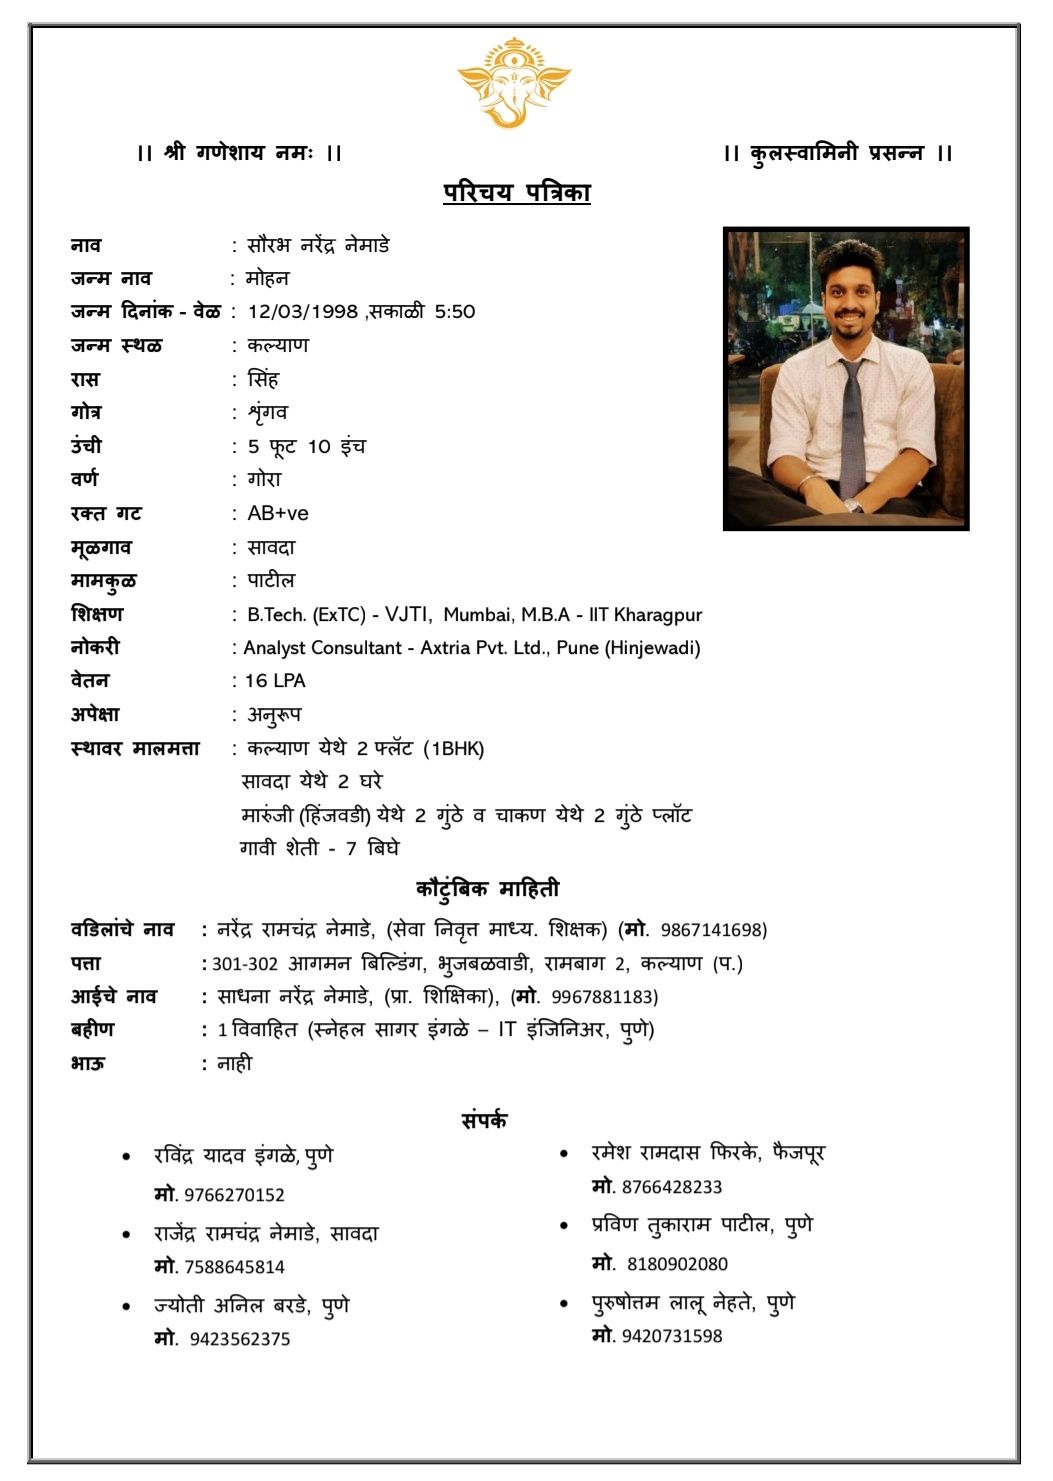 ।। श्री गणेशाय नमः ।। ।। कुलस्वामिनी प्रसन्न ।।
परिचय पत्रिका
नाव : सौरभ नरेंद्र नेमाडे
जन्म नाव : मोहन
जन्म दिनांक - वेळ : 12/03/1998 ,सकाळी 5:50
जन्म स्थळ : कल्याण
रास : सिंह
गोत्र : शृंगव
उंची : 5 फूट 10 इंच
वर्ण : गोरा
रक्त गट : AB+ve
मूळगाव : सावदा
मामकुळ : पाटील
शिक्षण : B.Tech. (ExTC) - VJTI, Mumbai, M.B.A - IIT Kharagpur
नोकरी : Analyst Consultant - Axtria Pvt. Ltd., Pune (Hinjewadi)
वेतन : 16 LPA
अपेक्षा : अनुरूप
स्थावर मालमत्ता : कल्याण येथे 2 फ्लॅट (1BHK)
सावदा येथे 2 घरे
मारुंजी (हिंजवडी) येथे 2 गुंठे व चाकण येथे 2 गुंठे प्लॉट
गावी शेती - 7 बिघे
कौटुंबिक माहिती
वडिलांचे नाव : नरेंद्र रामचंद्र नेमाडे, (सेवा निवृत्त माध्य. शिक्षक) (मो. 9867141698)
पत्ता : 301-302 आगमन बिल्डिंग, भुजबळवाडी, रामबाग 2, कल्याण (प.)
आईचे नाव : साधना नरेंद्र नेमाडे, (प्रा. शिक्षिका), (मो. 9967881183)
बहीण : 1 विवाहित (स्नेहल सागर इंगळे – IT इंजिनिअर, पुणे)
भाऊ : नाही
संपर्क
• रविंद्र यादव इंगळे, पुणे
मो. 9766270152
• राजेंद्र रामचंद्र नेमाडे, सावदा
मो. 7588645814
• ज्योती अनिल बरडे, पुणे
मो. 9423562375
• रमेश रामदास फिरके, फैजपूर
मो. 8766428233
• प्रविण तुकाराम पाटील, पुणे
मो. 8180902080
• पुरुषोत्तम लालू नेहते, पुणे
मो. 9420731598